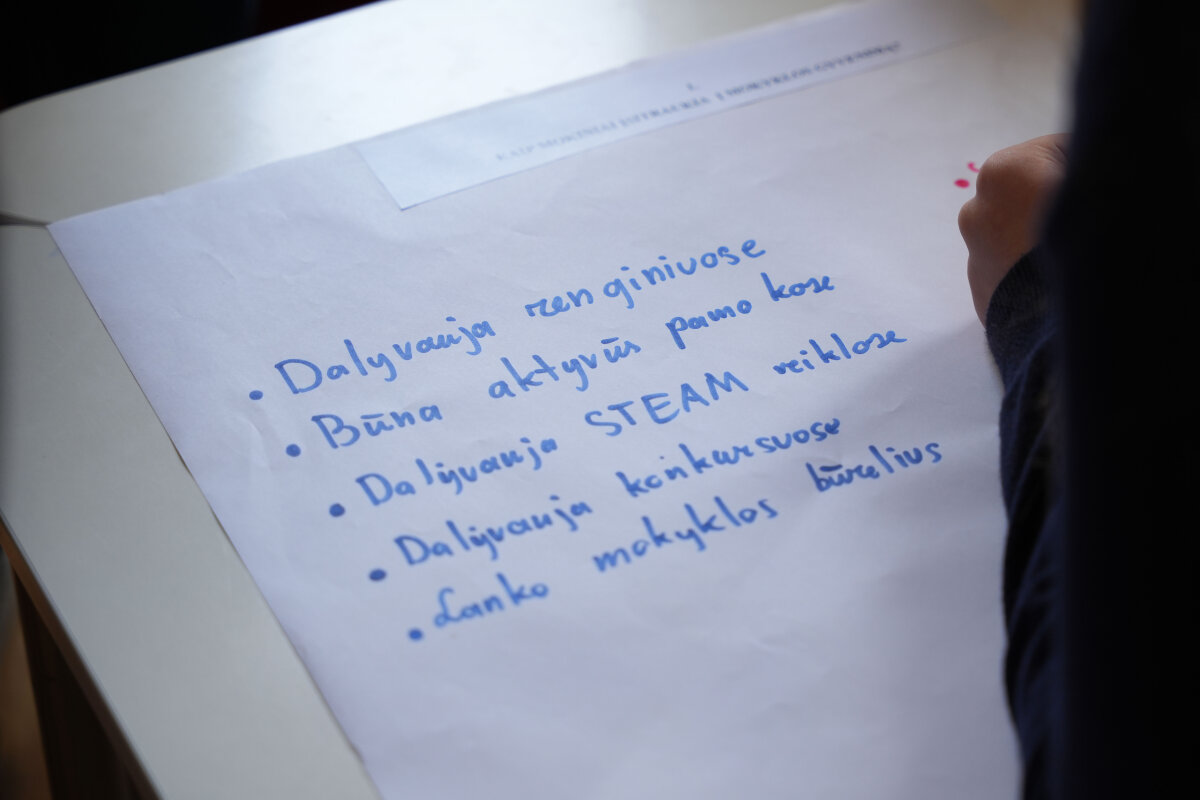 KAIP MOKINIAI ĮSITRAUKIA Į MOKYKLOS GYVENIMĄ?
• Dalyvauja renginiuose
• Būna aktyvūs pamokose
• Dalyvauja STEAM veiklose
• Dalyvauja konkursuose
• Lanko mokyklos būrelius